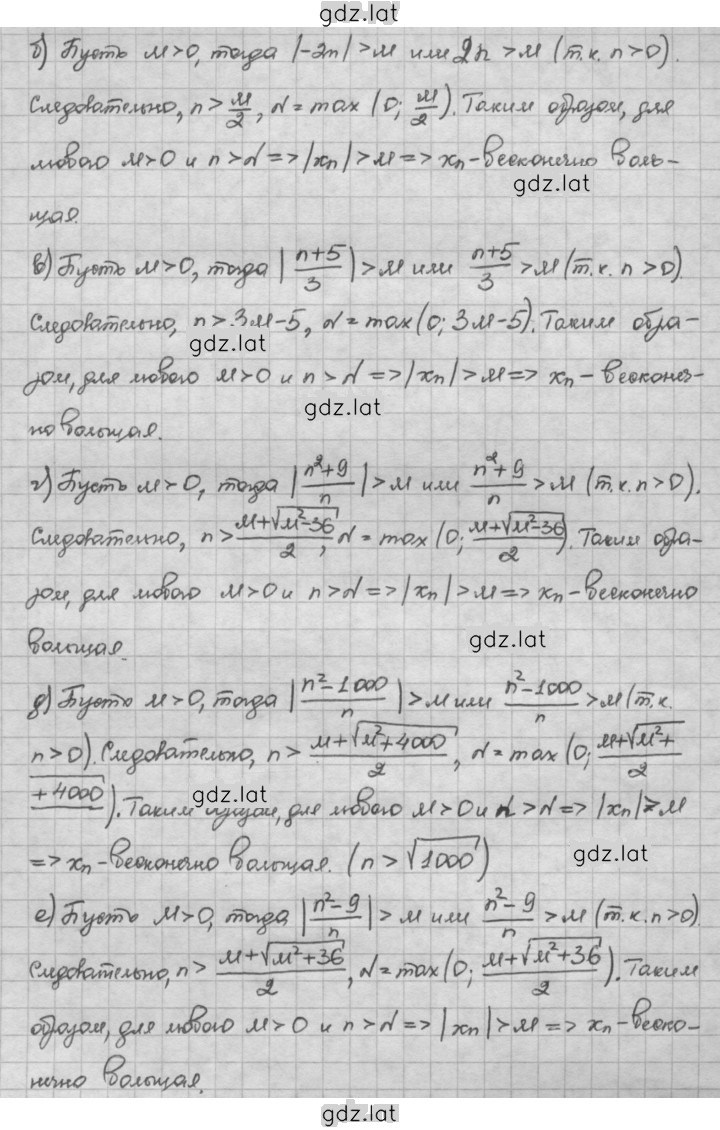 gdz.lat
б) Пусть M>0, тогда |-2n|>M или 2n>M (т.к. n>0).
Следовательно, n>M/2, N=max (0; M/2). Таким образом, для
любого M>0 и n>N => |xₙ|>M => xₙ-бесконечно боль-
gdz.lat
шая.
в) Пусть M>0, тогда |(n+5)/3|>M или (n+5)/3>M (т.к. n>0).
Следовательно, n>3M-5, N=max(0; 3M-5). Таким обра-
gdz.lat
зом, для любого M>0 и n>N => |xₙ|>M => xₙ-бесконеч-
gdz.lat
но большая.
г) Пусть M>0, тогда |(n²+9)/n|>M или (n²+9)/n>M (т.к. n>0).
Следовательно, n>(M+√(M²-36))/2, N=max (0; (M+√(M²-36))/2). Таким обра-
зом, для любого M>0 и n>N => |xₙ|>M => xₙ-бесконечно
gdz.lat
большая.
д) Пусть M>0, тогда |(n²-1000)/n|>M или (n²-1000)/n>M (т.к.
n>0). Следовательно, n>(M+√(M²+4000))/2, N=max (0; (M+√(M²+
+4000))/2). Таким образом, для любого M>0 и n>N => |xₙ|>M
gdz.lat
=> xₙ-бесконечно большая. (n>√1000)
gdz.lat
е) Пусть M>0, тогда |(n²-9)/n|>M или (n²-9)/n>M (т.к. n>0).
Следовательно, n>(M+√(M²+36))/2, N=max(0; (M+√(M²+36))/2). Таким
образом, для любого M>0 и n>N => |xₙ|>M => xₙ-беско-
нечно большая.
gdz.lat